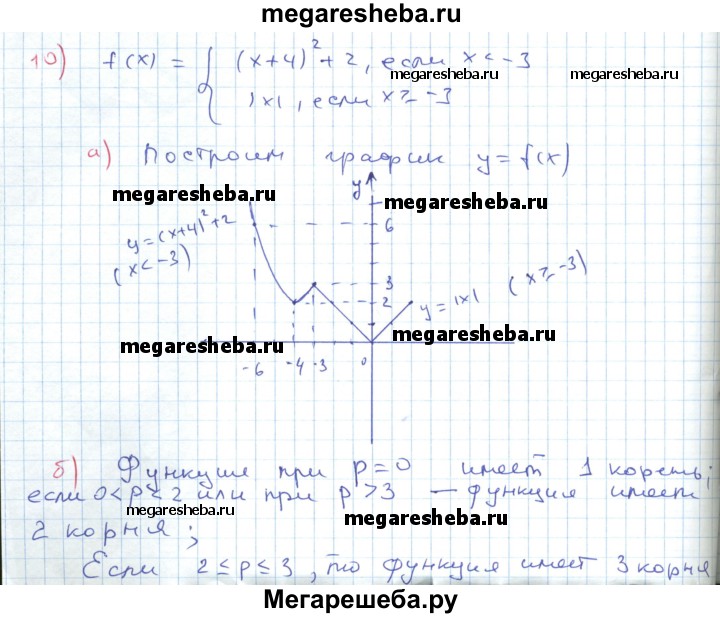 megaresheba.ru
10) f(x) = { (x+4)² + 2, если x < -3
megaresheba.ru megaresheba.ru
|x|, если x ≥ -3
а) Построим график y = f(x)
y
megaresheba.ru megaresheba.ru
y=(x+4)²+2
(x<-3)
6
3
2
y=|x| (x ≥ -3)
megaresheba.ru megaresheba.ru
-6 -4 -3 0
б) Функция при p=0 имеет 1 корень;
если 0<p<2 или при p>3 — функция имеет
megaresheba.ru megaresheba.ru
2 корня;
Если 2 ≤ p ≤ 3, то функция имеет 3 корня
Мегарешеба.ру